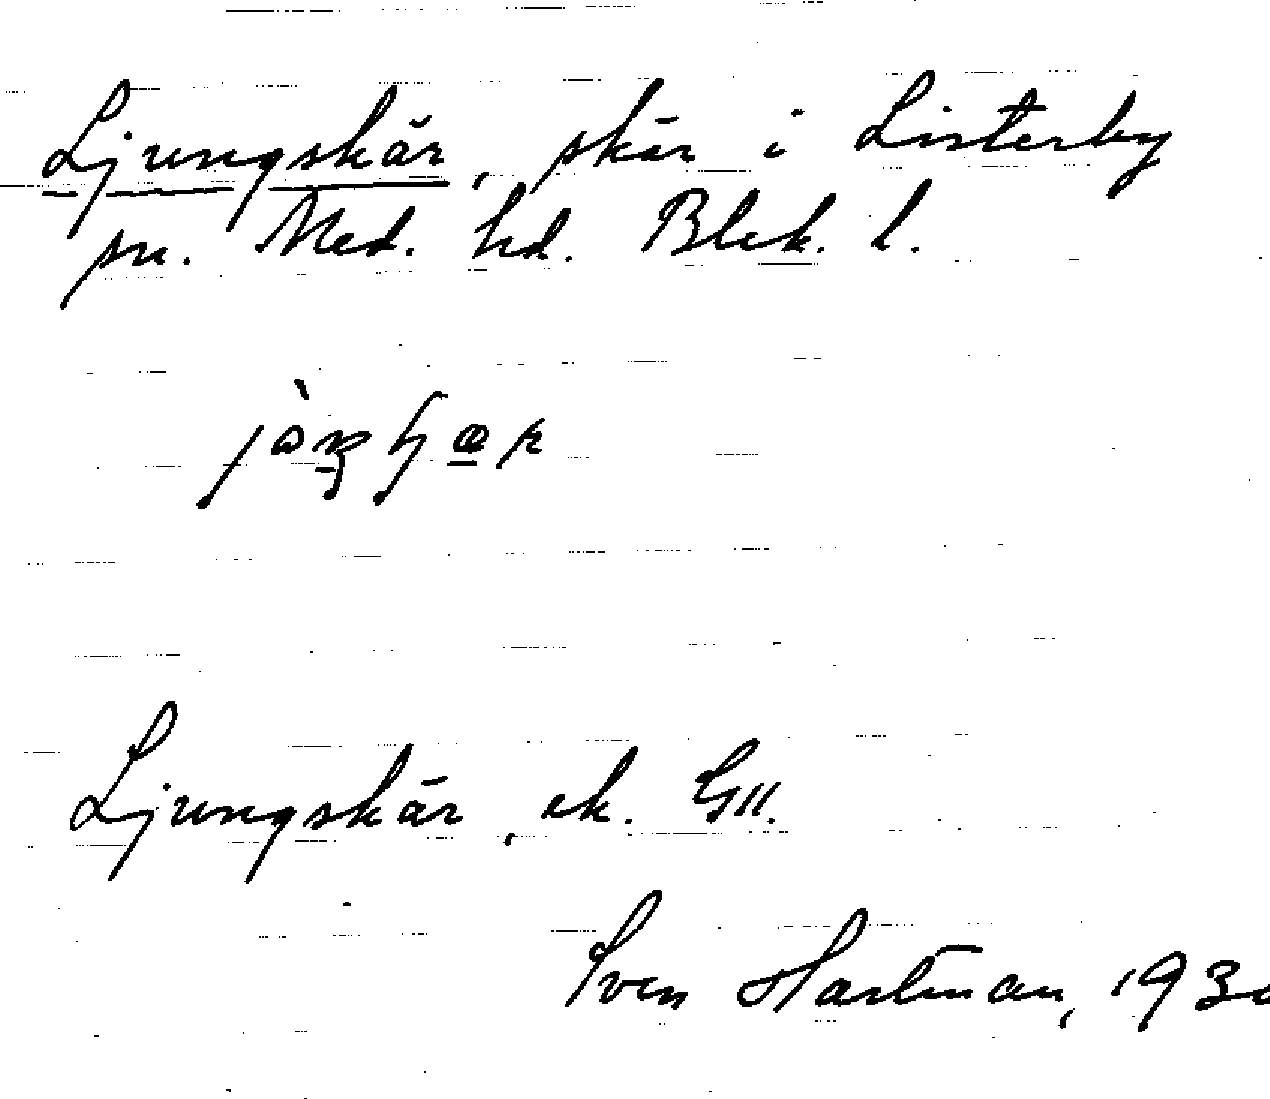 Ljungskär, skär i Listerby
sn. Med. hd. Blek. l.
Ljungskär, ek. GII.
Sven Hartman, 193